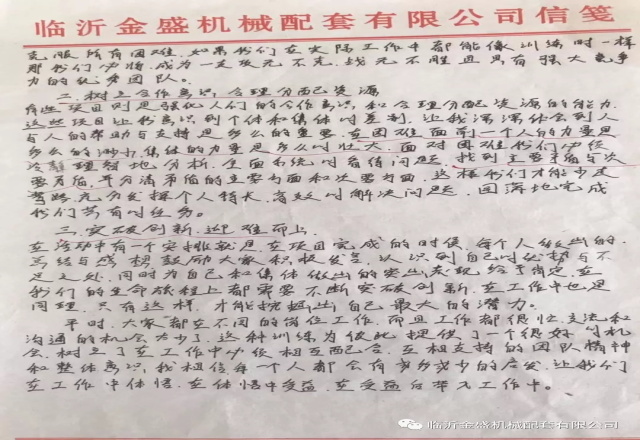 临沂金盛机械配套有限公司信笺
克服所有困难。如果我们在实际工作中都能像训练时一样
那我们必将成为一支攻无不克、战无不胜且具有强大竞争
力的优秀团队。
二、树立合作意识,合理分配资源
有些项目则是强化人们的合作意识和合理分配资源的能力。
这些项目让我意识到个体和集体的差别,让我深深体会到人
与人的帮助与支持是多么的重要,在困难面前一个人的力量是
多么的渺小,集体的力量是多么的壮大。面对困难我们必须
冷静理智地分析,全面系统的看待问题,找到主要矛盾与次
要矛盾,平分清矛盾的主要方面和次要方面,这样我们才能少走
弯路充分发挥个人特长,高效的解决问题,圆满地完成
我们共有的任务。
三、突破创新,迎难而上
在活动中有一个安排就是,在项目完成的时候,每个人做出的
总结与感想鼓励大家积极发言,认识到自己的优势与不
足之处,同时为自己和集体做出的突出表现给予肯定,在
我们的生命旅程上都需要不断突破创新,在工作中也是
同理,只有这样,才能挖掘出自己最大的潜力。
平时,大家都在不同的岗位工作,而且工作都很忙,交流和
沟通的机会太少了,这种训练为彼此提供了一个很好的机
会,树立了在工作中必须相互配合、互相支持的团队精神
和整体意识,我相信每一个人都会有或多或少的启发,让我们
在工作中体悟,在体悟中受益,在受益后带入工作中。
临沂金盛机械配套有限公司